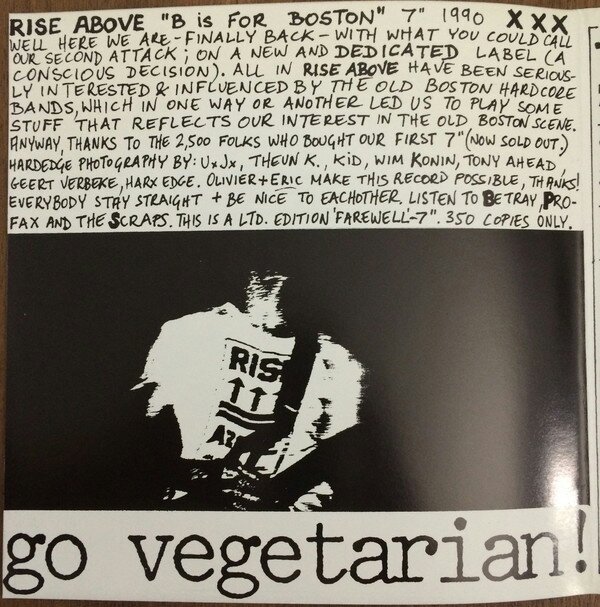 RISE ABOVE "B is FOR BOSTON" 7" 1990 XXX
WELL HERE WE ARE - FINALLY BACK - WITH WHAT YOU COULD CALL
OUR SECOND ATTACK; ON A NEW AND DEDICATED LABEL (A
CONSCIOUS DECISION). ALL IN RISE ABOVE HAVE BEEN SERIOUS-
LY INTERESTED & INFLUENCED BY THE OLD BOSTON HARDCORE
BANDS, WHICH IN ONE WAY OR ANOTHER LED US TO PLAY SOME
STUFF THAT REFLECTS OUR INTEREST IN THE OLD BOSTON SCENE.
ANYWAY, THANKS TO THE 2,500 FOLKS WHO BOUGHT OUR FIRST 7" (NOW SOLD OUT.)
HARDEDGE PHOTOGRAPHY BY: UxJx, THEUN K., KiD, WIM KONIN, TONY AHEAD,
GEERT VERBEKE, HARX EDGE. OLIVIER + ERIC MAKE THIS RECORD POSSIBLE, THANKS!
EVERYBODY STAY STRAIGHT + BE NICE TO EACHOTHER. LISTEN TO BETRAY, PRO-
FAX AND THE SCRAPS. THIS IS A LTD. EDITION 'FAREWELL'-7". 350 COPIES ONLY.
RIS
↑↑
go vegetarian!